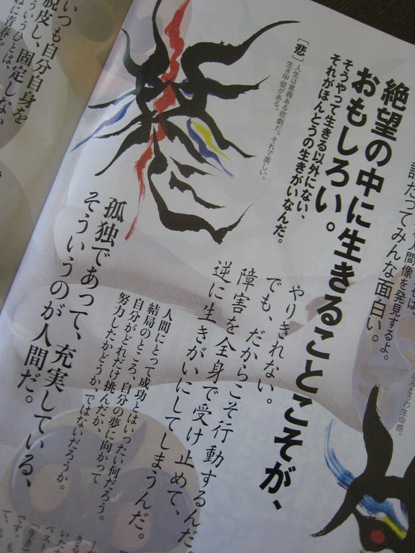 間像を発見するよ。
誰だってみんな面白い。
絶望の中に生きることこそが、
おもしろい。
そうやって生きる以外にない、
それがほんとうの生きがいなんだ。
[悲]
人生は意義ある悲劇だ。それで美しい。
生き甲斐がある。
やりきれない。
でも、だからこそ行動するんだ。
障害を全身で受け止めて、
逆に生きがいにしてしまうんだ。
人間にとって成功とはいったい何だろう。
結局のところ、自分の夢に向かって
自分がどれだけ挑んだか、
努力したかどうか、ではないだろうか。
孤独であって、充実している、
そういうのが人間だ。
いつも自分自身を
脱皮し、固定しない。